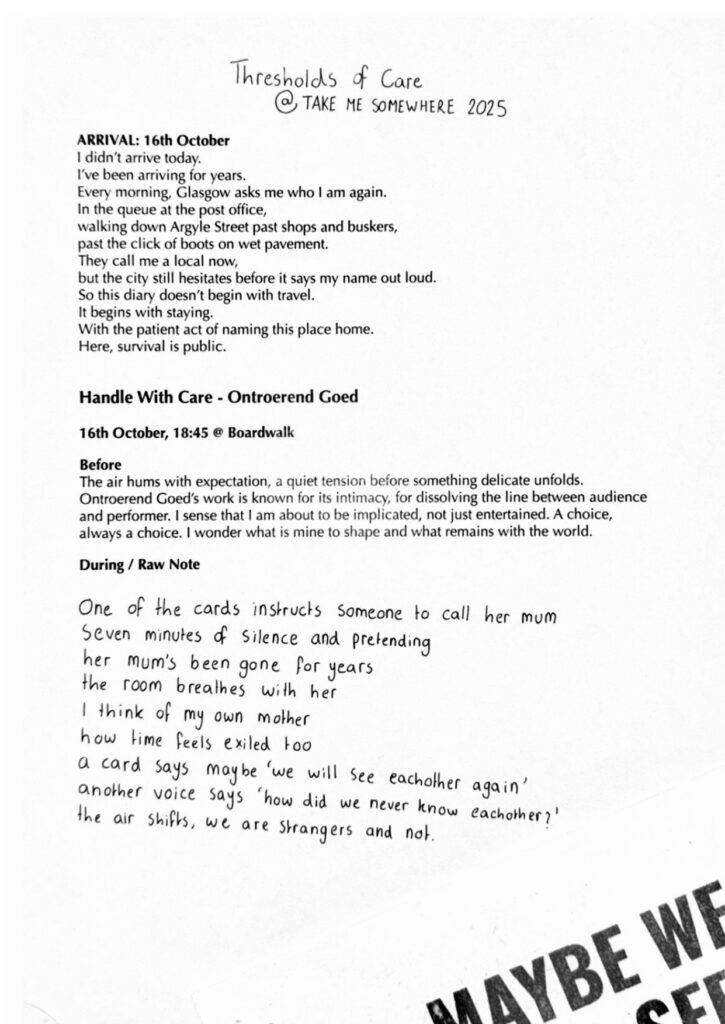 Thresholds of Care
@ TAKE ME SOMEWHERE 2025
ARRIVAL: 16th October
I didn't arrive today.
I've been arriving for years.
Every morning, Glasgow asks me who I am again.
In the queue at the post office,
walking down Argyle Street past shops and buskers,
past the click of boots on wet pavement.
They call me a local now,
but the city still hesitates before it says my name out loud.
So this diary doesn't begin with travel.
It begins with staying.
With the patient act of naming this place home.
Here, survival is public.
Handle With Care - Ontroerend Goed
16th October, 18:45 @ Boardwalk
Before
The air hums with expectation, a quiet tension before something delicate unfolds.
Ontroerend Goed's work is known for its intimacy, for dissolving the line between audience
and performer. I sense that I am about to be implicated, not just entertained. A choice,
always a choice. I wonder what is mine to shape and what remains with the world.
During / Raw Note
One of the cards instructs someone to call her mum
Seven minutes of silence and pretending
her mum's been gone for years
the room breathes with her
I think of my own mother
how time feels exiled too
a card says maybe 'we will see eachother again'
another voice says 'how did we never know eachother?'
the air shifts, we are strangers and not.
MAYBE WE
SEE